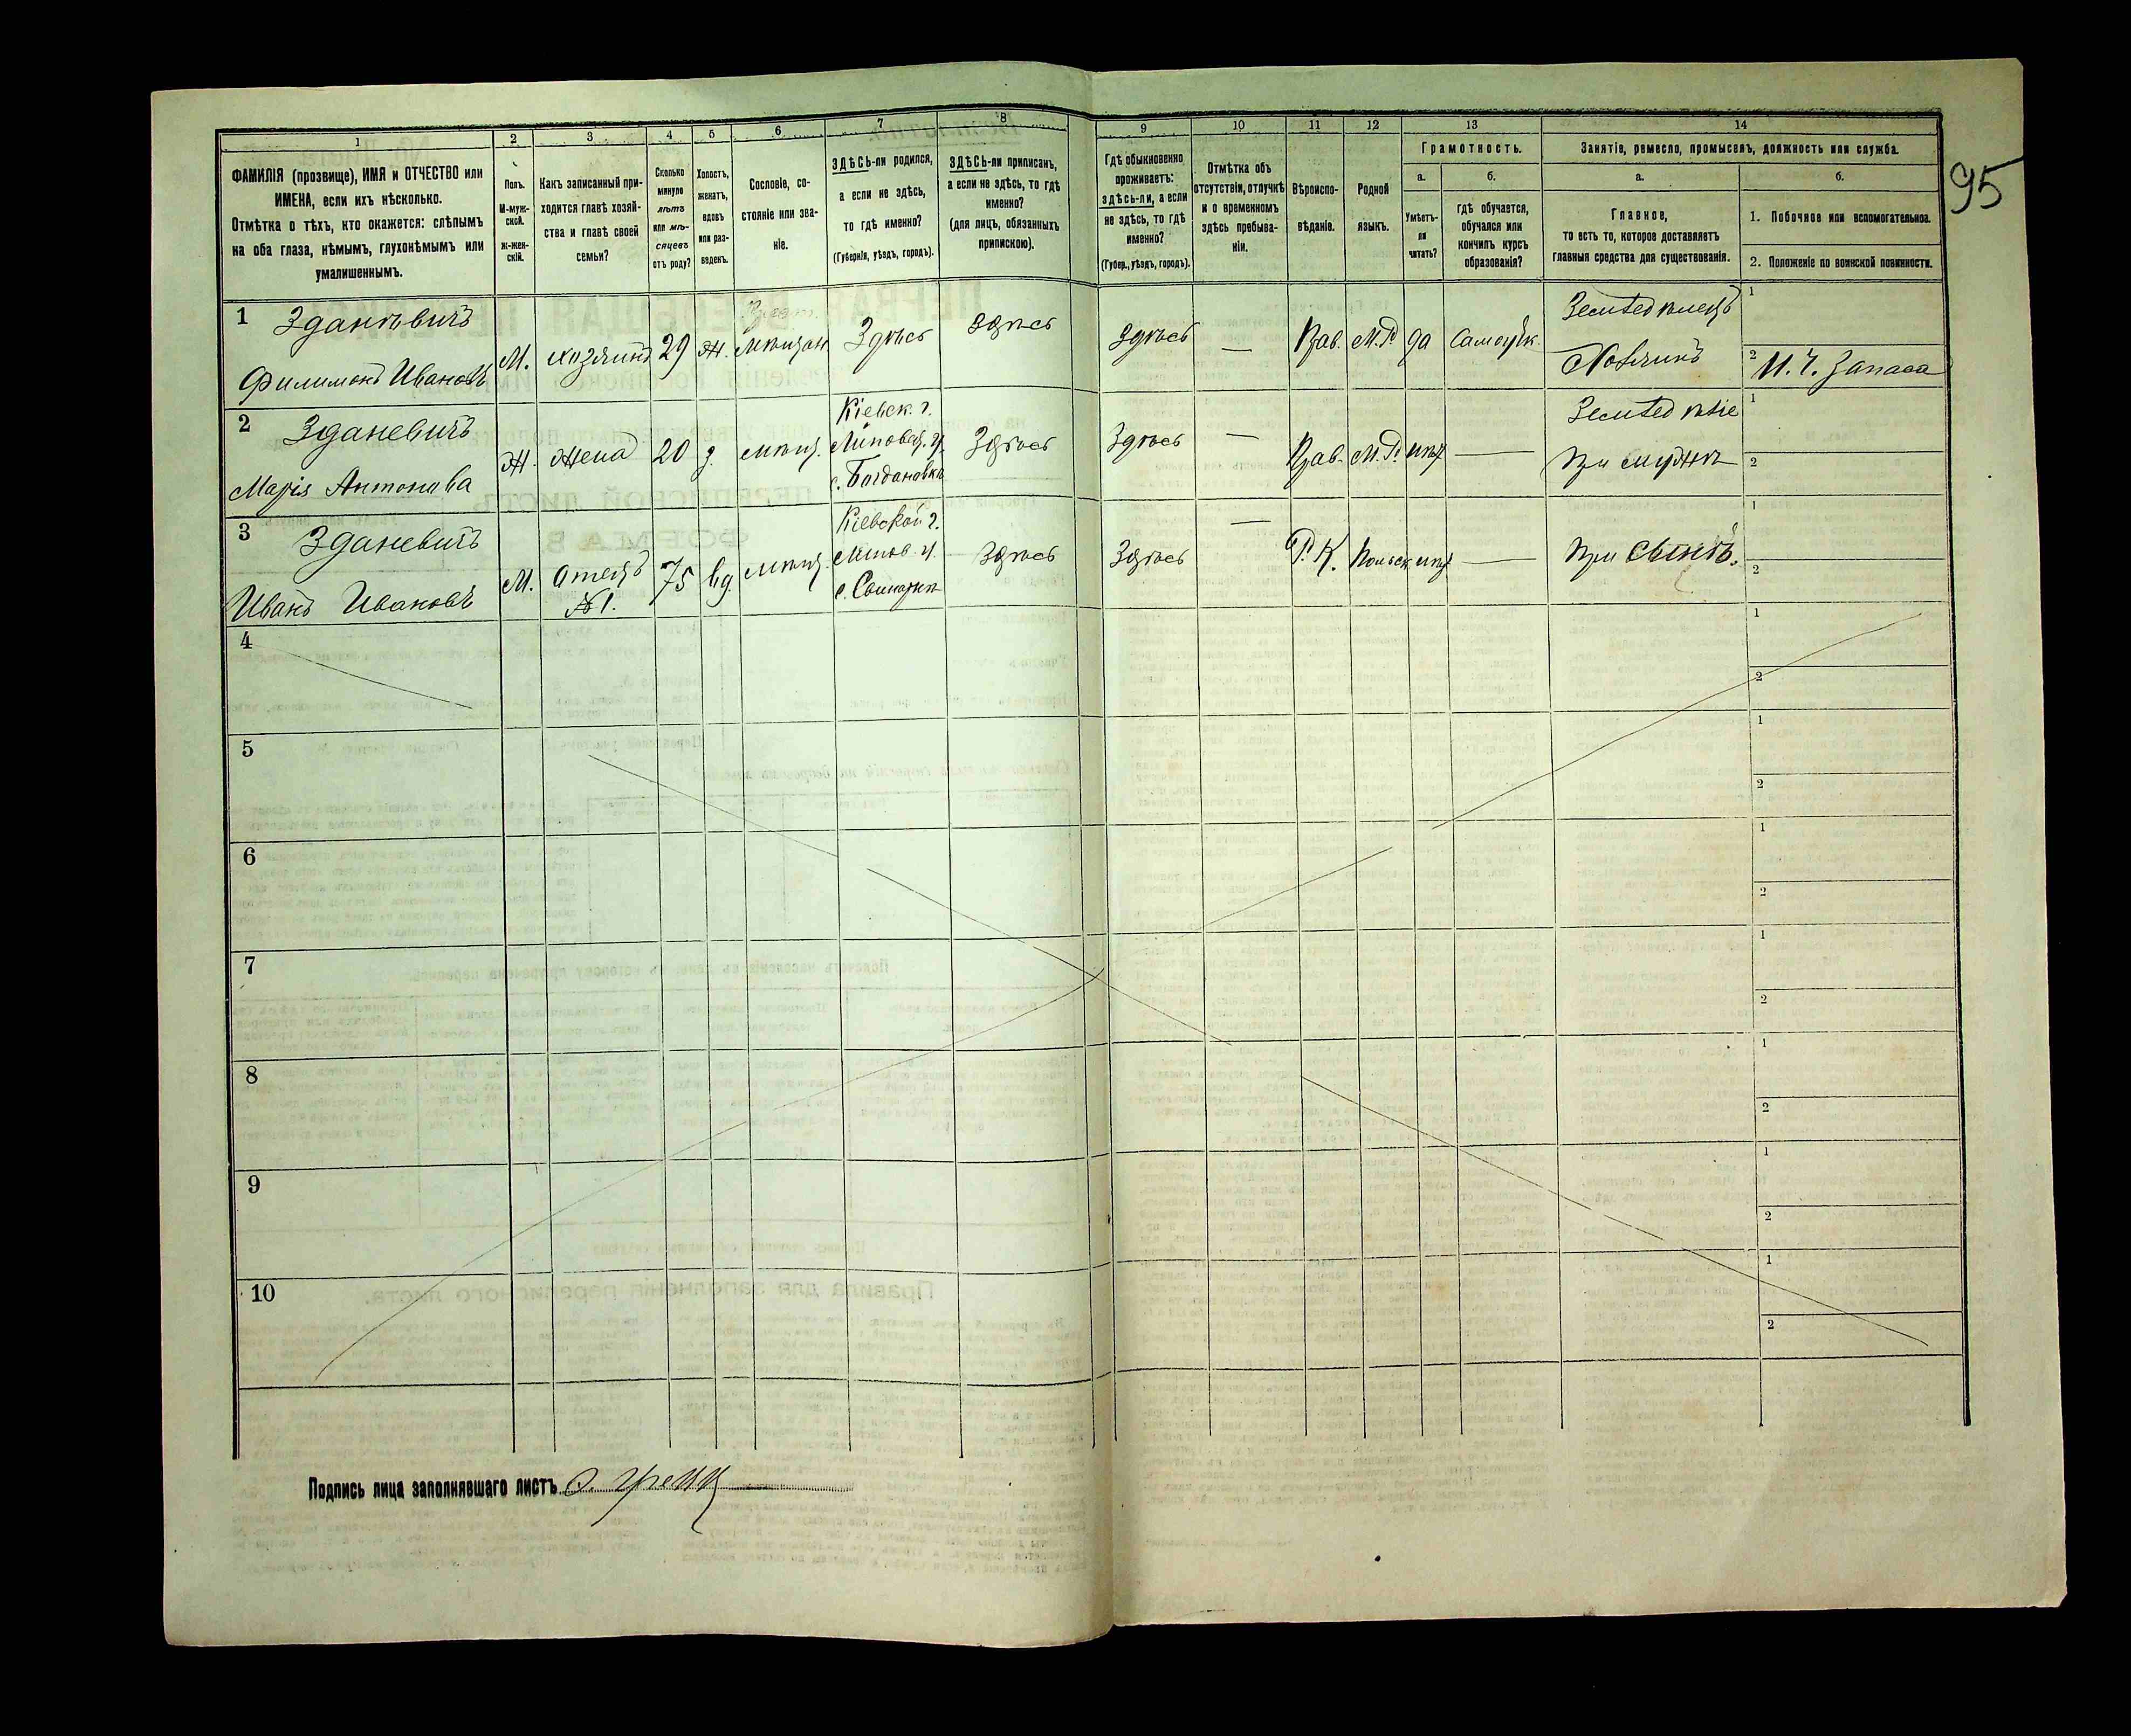 95
1 2 3 4 5 6 7 8 9 10 11 12 13 14
ФАМИЛІЯ (прозвище), ИМЯ и ОТЧЕСТВО или
ИМЕНА, если ихъ нѣсколько.
Отмѣтка о тѣхъ, кто окажется: слѣпымъ
на оба глаза, нѣмымъ, глухонѣмымъ или
умалишеннымъ.
Полъ.
М-муж-
ской.
Ж-жен-
скій.
Какъ записанный при-
ходится главѣ хозяй-
ства и главѣ своей
семьи?
Сколько
минуло
лѣтъ
или мѣ-
сяцевъ
отъ роду?
Холостъ,
женатъ,
вдовъ
или раз-
веденъ.
Сословіе, со-
стояніе или зва-
ніе.
ЗДѢСЬ-ли родился,
а если не здѣсь,
то гдѣ именно?
(Губернія, уѣздъ, городъ).
ЗДѢСЬ-ли приписанъ,
а если не здѣсь, то гдѣ
именно?
(для лицъ, обязанныхъ
припискою).
Гдѣ обыкновенно
проживаетъ:
здѣсь-ли, а если
не здѣсь, то гдѣ
именно?
(Губер., уѣздъ, городъ).
Отмѣтка объ
отсутствіи, отлучкѣ
и о временномъ
здѣсь пребыва-
ніи.
Вѣроиспо-
вѣданіе.
Родной
языкъ.
Грамотность.
а.
Умѣетъ-
ли
читать?
б.
гдѣ обучается,
обучался или
кончилъ курсъ
образованія?
Занятіе, ремесло, промыселъ, должность или служба.
а.
Главное,
то есть то, которое доставляетъ
главныя средства для существованія.
б.
1. Побочное или вспомогательное.
2. Положеніе по воинской повинности.
1 Зданѣвичъ
Филимонъ Ивановъ
М.
хозяинъ
29
Ж.
мѣщан.
Здѣсь
здѣсь
здѣсь
—
Прав.
М.Р.
да
Самоучк.
Земледѣлецъ
Хозяинъ
1
2 И. Ч. Запаса
2 Зданевичъ
Марія Антонова
Ж.
жена
20
з.
мѣщ.
Кіевск. г.
Липовец. у.
с. Богдановка
Здѣсь
Здѣсь
—
Прав.
М.Р.
нѣт
—
Земледѣліе
При мужѣ
1
2
3 Зданевичъ
Иванъ Ивановъ
М.
Отецъ
№ 1.
75
вд.
мѣщ.
Кіевской г.
Липов. у.
с.
Здѣсь
Здѣсь
—
Р. К.
Польск.
нѣт
—
При Сынѣ.
1
2
4
1
2
5
1
2
6
1
2
7
1
2
8
1
2
9
1
2
10
1
2
Подпись лица заполнявшаго листъ